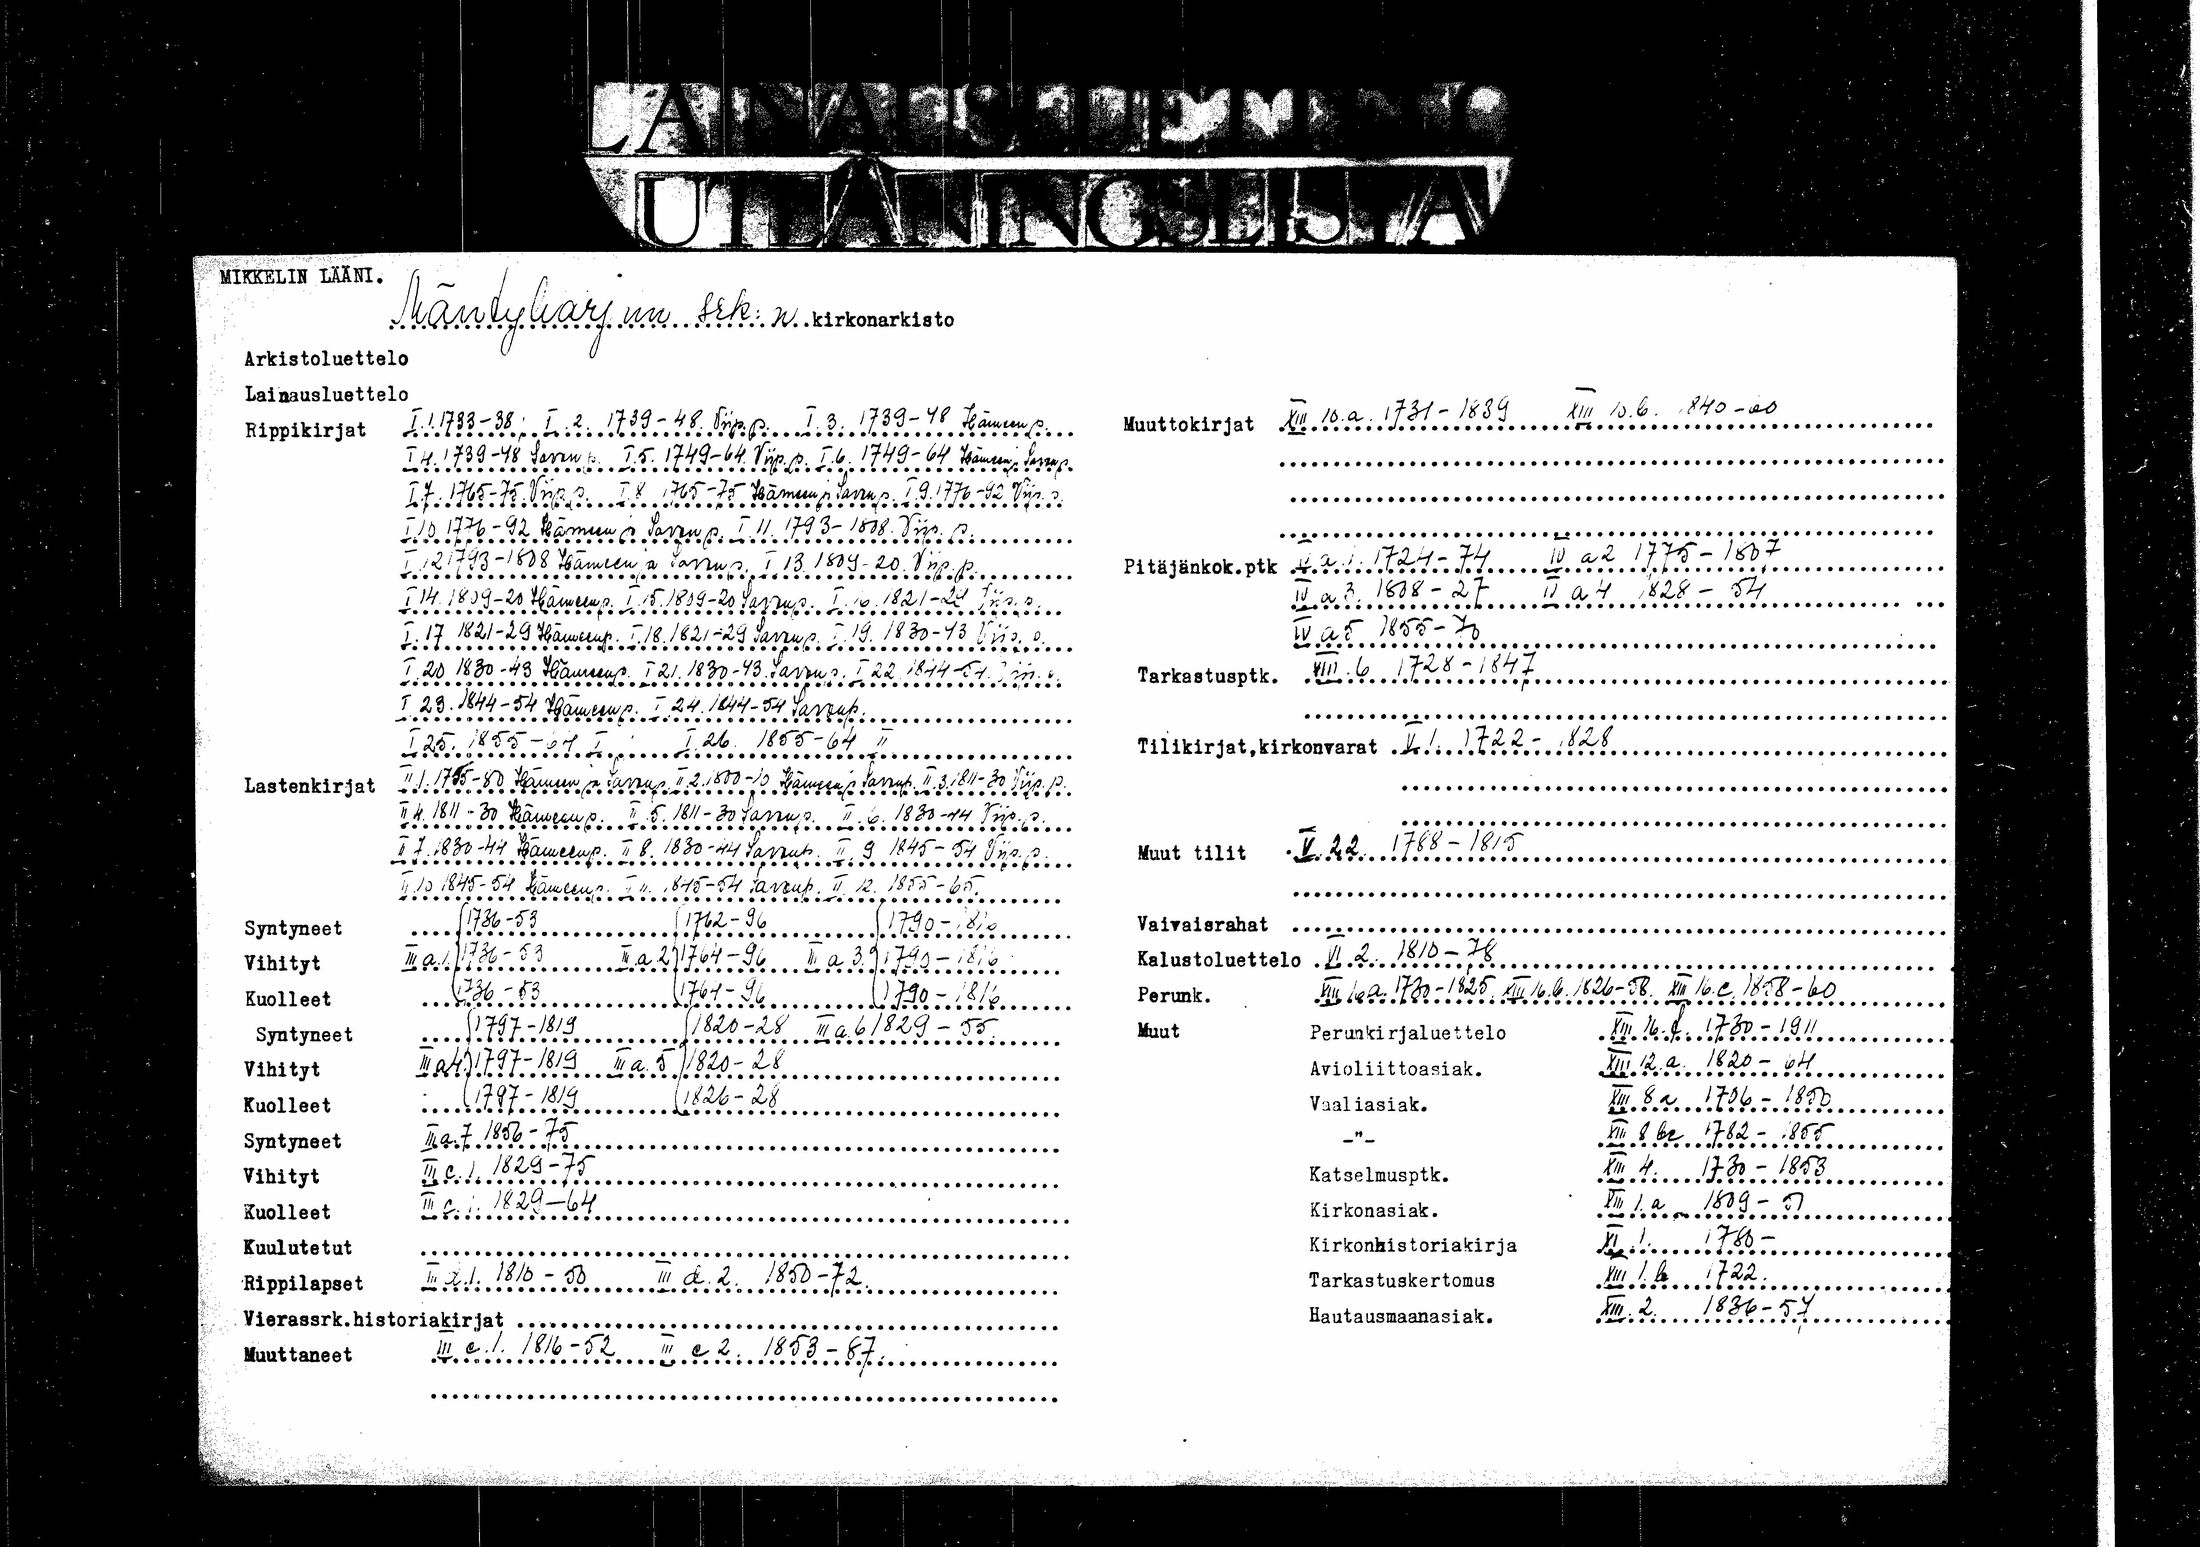 LAINAUSLUETTELO
UTLÅNINGSLISTA
MIKKELIN LÄÄNI.
Mäntyharjun srk:n kirkonarkisto
Arkistoluettelo
Lainausluettelo
Rippikirjat I.1.1733-38; I.2. 1739-48. Viip.p. I.3. 1739-48 Hämeen p.
I 4. 1739-48 Savon p. I.5. 1749-64. Viip.p. I.6. 1749-64 Hämeen ja Savon p.
I.7. 1765-75. Viip.p. I.8. 1765-75 Hämeen ja Savon p. I.9. 1776-92 Viip.p.
I.10 1776-92 Hämeen ja Savon p. I.11. 1793-1808. Viip.p.
I.12 1793-1808 Hämeen ja Savon p. I 13. 1809-20. Viip.p.
I 14. 1809-20 Hämeen p. I.15. 1809-20 Savon p. I.16. 1821-29 Viip.p.
I.17 1821-29 Hämeen p. I.18. 1821-29 Savon p. I.19. 1830-43 Viip.p.
I.20 1830-43 Hämeen p. I 21. 1830-43. Savon p. I 22. 1844-54. Viip.p.
I 23. 1844-54 Hämeen p. I.24. 1844-54 Savon p.
I 25. 1855-64 I I.26. 1855-64 II
Lastenkirjat II 1. -80 Hämeen ja Savon p. II 2. 1800-10 Hämeen ja Savon p. II 3. 1811-30 Viip.p.
II 4. 1811-30 Hämeen p. II.5. 1811-30 Savon p. II.6. 1830-44 Viip.p.
II 7. 1830-44 Hämeen p. II 8. 1830-44 Savon p. II.9 1845-54 Viip.p.
II.10 1845-54 Hämeen p. II 11. 1845-54 Savon p. II.12. 1855-65.
Syntyneet 1736-53 1762-96 1790-1816
Vihityt III a.1. 1736-53 III a 2. 1764-96 III a 3. 1790-1816
Kuolleet 1736-53 1764-96 1790-1816
Syntyneet 1797-1819 1820-28 III a.6 1829-55.
Vihityt III a 4. 1797-1819 III a.5 1820-28
Kuolleet 1797-1819 1826-28
Syntyneet III a.7 1856-75
Vihityt III c.1. 1829-75
Kuolleet III 1829-64
Kuulutetut
Rippilapset III d.1. 1810-50 III d.2. 1850-72.
Vierassrk.historiakirjat
Muuttaneet III e.1. 1816-52 III e 2. 1853-87.
Muuttokirjat XIII 10.a. 1731-1839 XIII 10.b. 1840-60
Pitäjänkok.ptk IV a.1. 1724-74 IV a 2 1775-1807
IV a 3. 1808-27 IV a 4 1828-54
IV a 5 1855-70
Tarkastusptk. XIII.6. 1728-1847
Tilikirjat,kirkonvarat V.1. 1722-1828
Muut tilit V.22. 1788-1815
Vaivaisrahat
Kalustoluettelo VI.2. 1810-78
Perunk. XIII 16.a. 1730-1825. XIII 16.b. 1826-58. XIII 16.c. 1858-60
Muut Perunkirjaluettelo XIII.16.f. 1730-1911
Avioliittoasiak. XIII.12.a. 1820-64
Vaaliasiak. XIII.8 a 1706-1850
-"- XIII 8 1782-1855
Katselmusptk. XIII 4. 1730-1853
Kirkonasiak. XIII 1.a 1809-51
Kirkonhistoriakirja XI.1. 1780-
Tarkastuskertomus XIII.1.b 1722.
Hautausmaanasiak. XIII.2. 1836-57